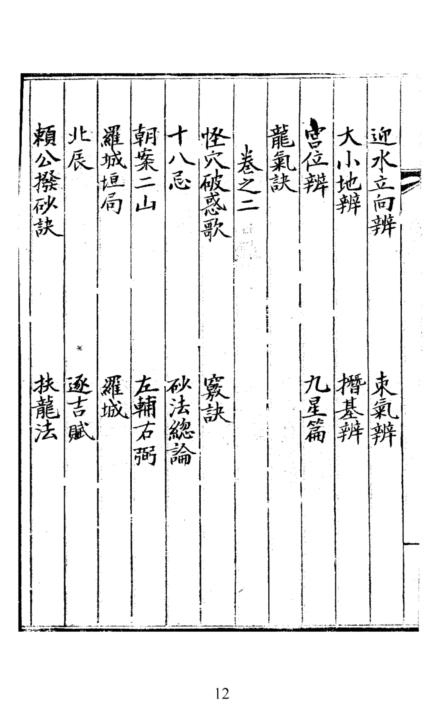 迎水立向辨　朿氣辨
大小地辨　㨻基辨
宮位辨　九星篇
龍氣訣
卷之二
怪穴破惑歌　竅訣
十八忌　砂法總論
朝案二山　左輔右弼
羅城垣局　羅城
北辰　逐吉賦
賴公撥砂訣　扶龍法
12